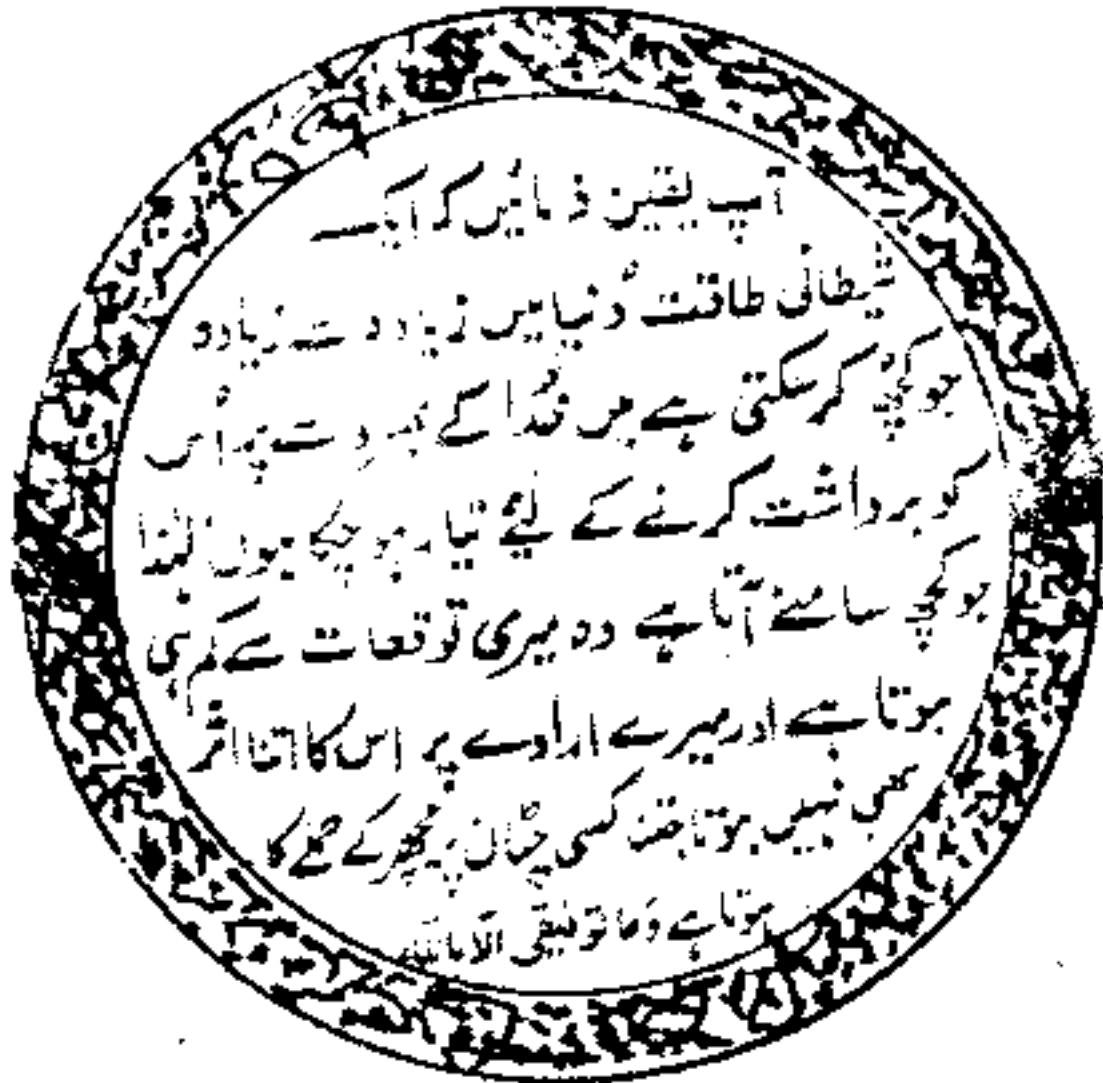 آپ یقین فرمائیں کہ ایک
شیطانی طاقت دُنیا میں زیادہ سے زیادہ
جو کچھ کر سکتی ہے میں خُدا کے بھروسے پر اُس
کو برداشت کرنے کے لیے تیار ہو چکا ہوں لہٰذا
جو کچھ سامنے آتا ہے وہ میری توقعات سے کم ہی
ہوتا ہے اور میرے ارادے پر اس کا اتنا اثر
بھی نہیں ہوتا جتنا کسی چٹان پر مچھر کے حملے کا
ہوتا ہے وما توفیقی الا باللہ